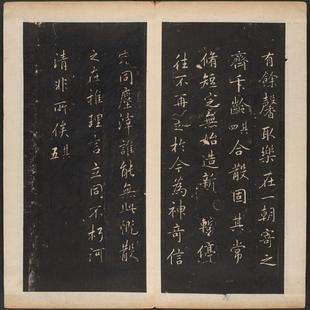 有餘馨取樂在一朝寄之
齊千齡其四合散固其常
脩短定無始造新不蹔停
往不再起於今為神奇信
宿同塵滓誰能無此慨散
之在推理言立同不朽河
清非所俟其五